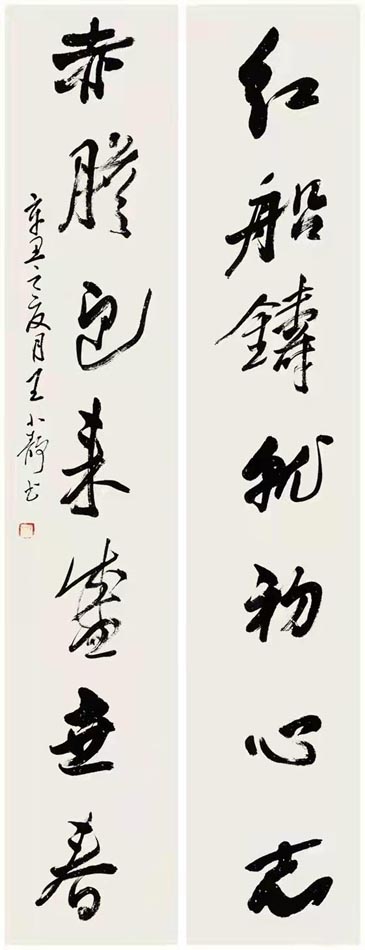 红船鑄就初心志
赤膽迎来盛世春
辛丑之夏月王小靜书